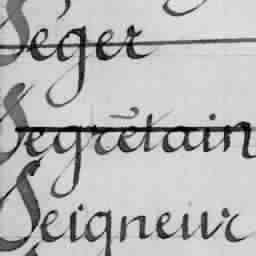 Séger
Segrétain
Seigneur